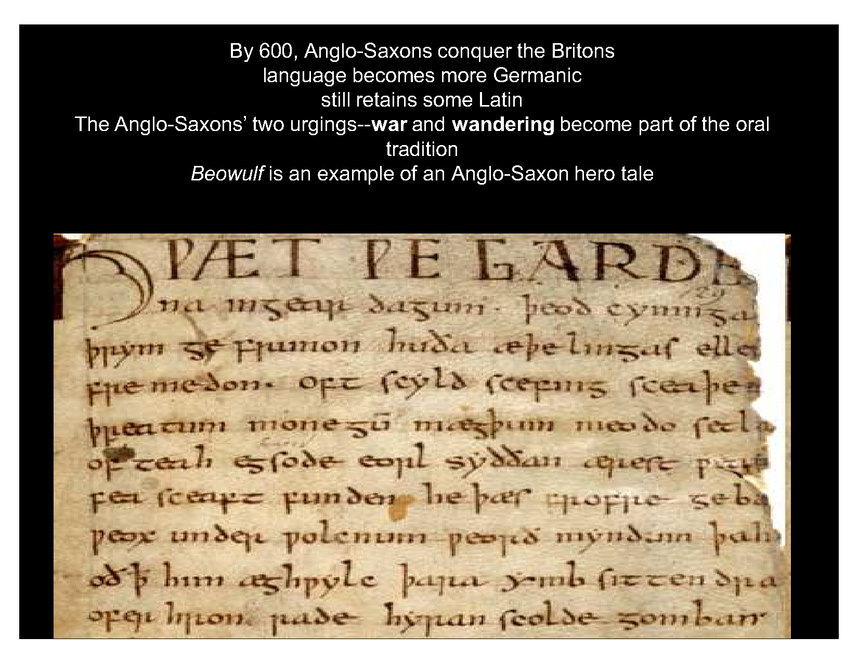 By 600, Anglo-Saxons conquer the Britons
language becomes more Germanic
still retains some Latin
The Anglo-Saxons’ two urgings--war and wandering become part of the oral
tradition
Beowulf is an example of an Anglo-Saxon hero tale
HǷÆT ǷE GARDE
na ingear dagum. þeod cyninga
þrym ge frunon huða æþelingas elle
fremedon. oft scyld scefing sceaþe
þreatum monegū mægþum meodo setla
of teah egsode eorl syððan ærest
fea sceaft funden he þæs frofre geba
ƿeox under ƿolcnum ƿeorð myndum þah
oð ꝥ him æghƿylc þara ymb sittendra
ofer hron rade hyran scolde gomban